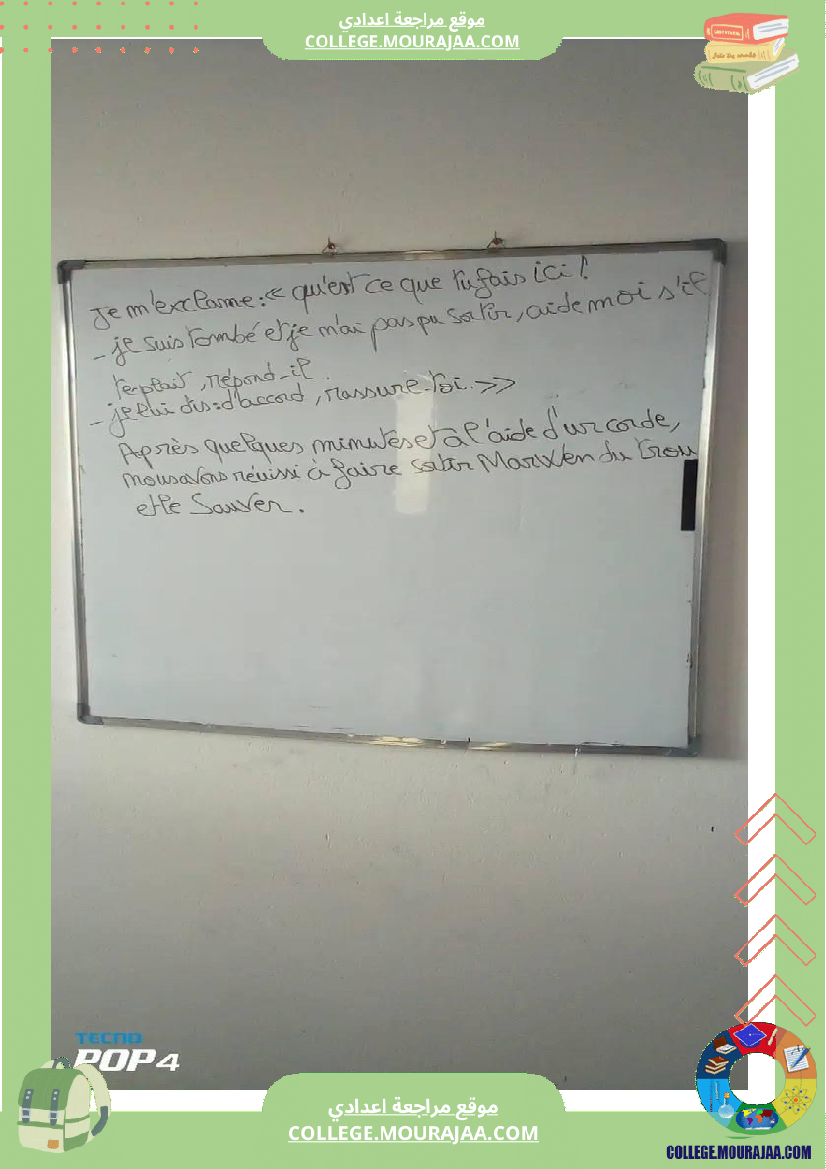 موقع مراجعة اعدادي
COLLEGE.MOURAJAA.COM
Je m'exclame : « qu'est ce que tu fais ici !
- je suis tombé et je n'ai pas pu sortir, aide moi s'il
te plait, répond-il.
- je lui dis : d'accord, rassure-toi. »
Après quelques minutes et à l'aide d'un corde,
nous avons réussi à faire sortir Marwen du trou
et le sauver.
TECNO
POP 4
موقع مراجعة اعدادي
COLLEGE.MOURAJAA.COM
COLLEGE.MOURAJAA.COM